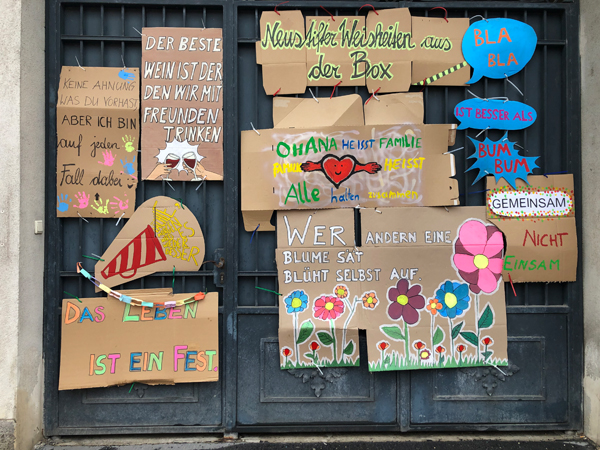 KEINE AHNUNG
WAS DU VORHAST
ABER ICH BIN
auf jeden
Fall dabei
DER BESTE
WEIN IST DER
DEN WIR MIT
FREUNDEN
TRINKEN
Neustifter Weisheiten aus
der Box
BLA
BLA
IST BESSER ALS
BUM
BUM
OHANA HEISST FAMILIE
FAMILIE HEISST
Alle halten zusammen
GEMEINSAM
NICHT
EINSAM
WER ANDERN EINE
BLUME SÄT
BLÜHT SELBST AUF
DAS LEBEN
IST EIN FEST.